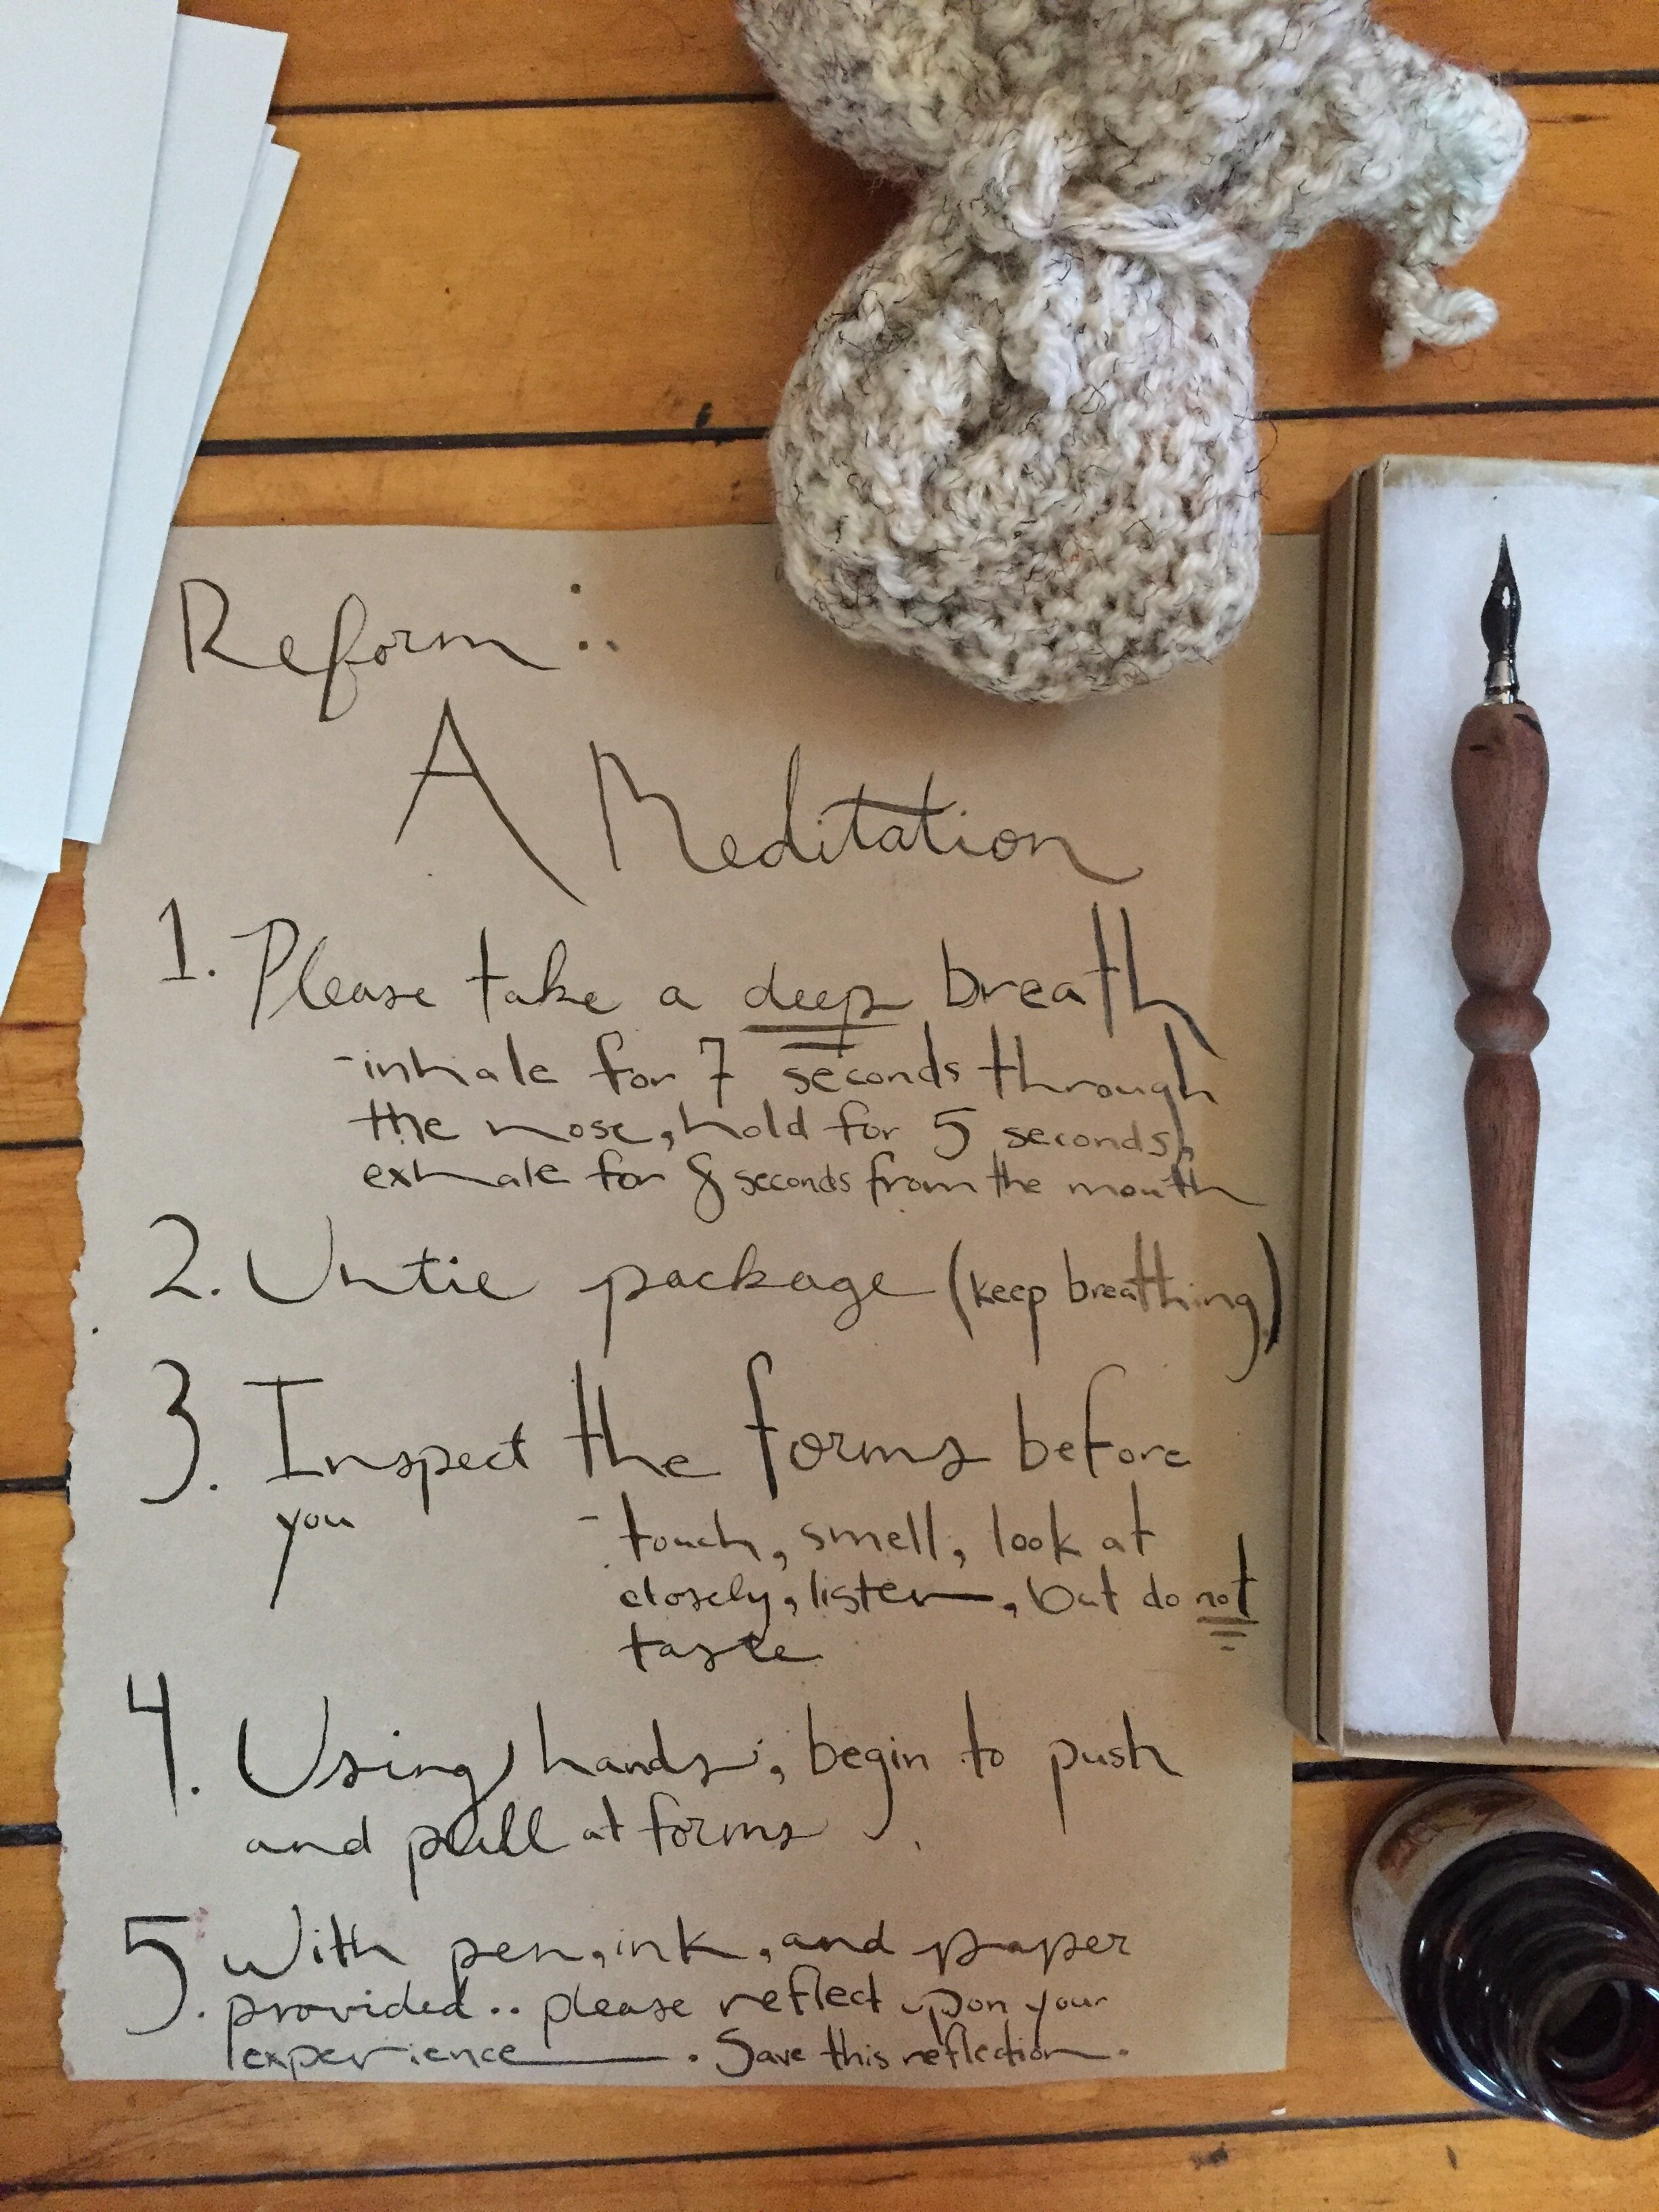 Reform:.
A Meditation
1. Please take a deep breath
-inhale for 7 seconds through
the nose, hold for 5 seconds,
exhale for 8 seconds from the mouth
2. Untie package (keep breathing)
3. Inspect the forms before
you - touch, smell, look at
closely, listen, but do not
taste
4. Using hands, begin to push
and pull at forms
5. With pen, ink, and paper
provided.. please reflect upon your
experience. Save this reflection.